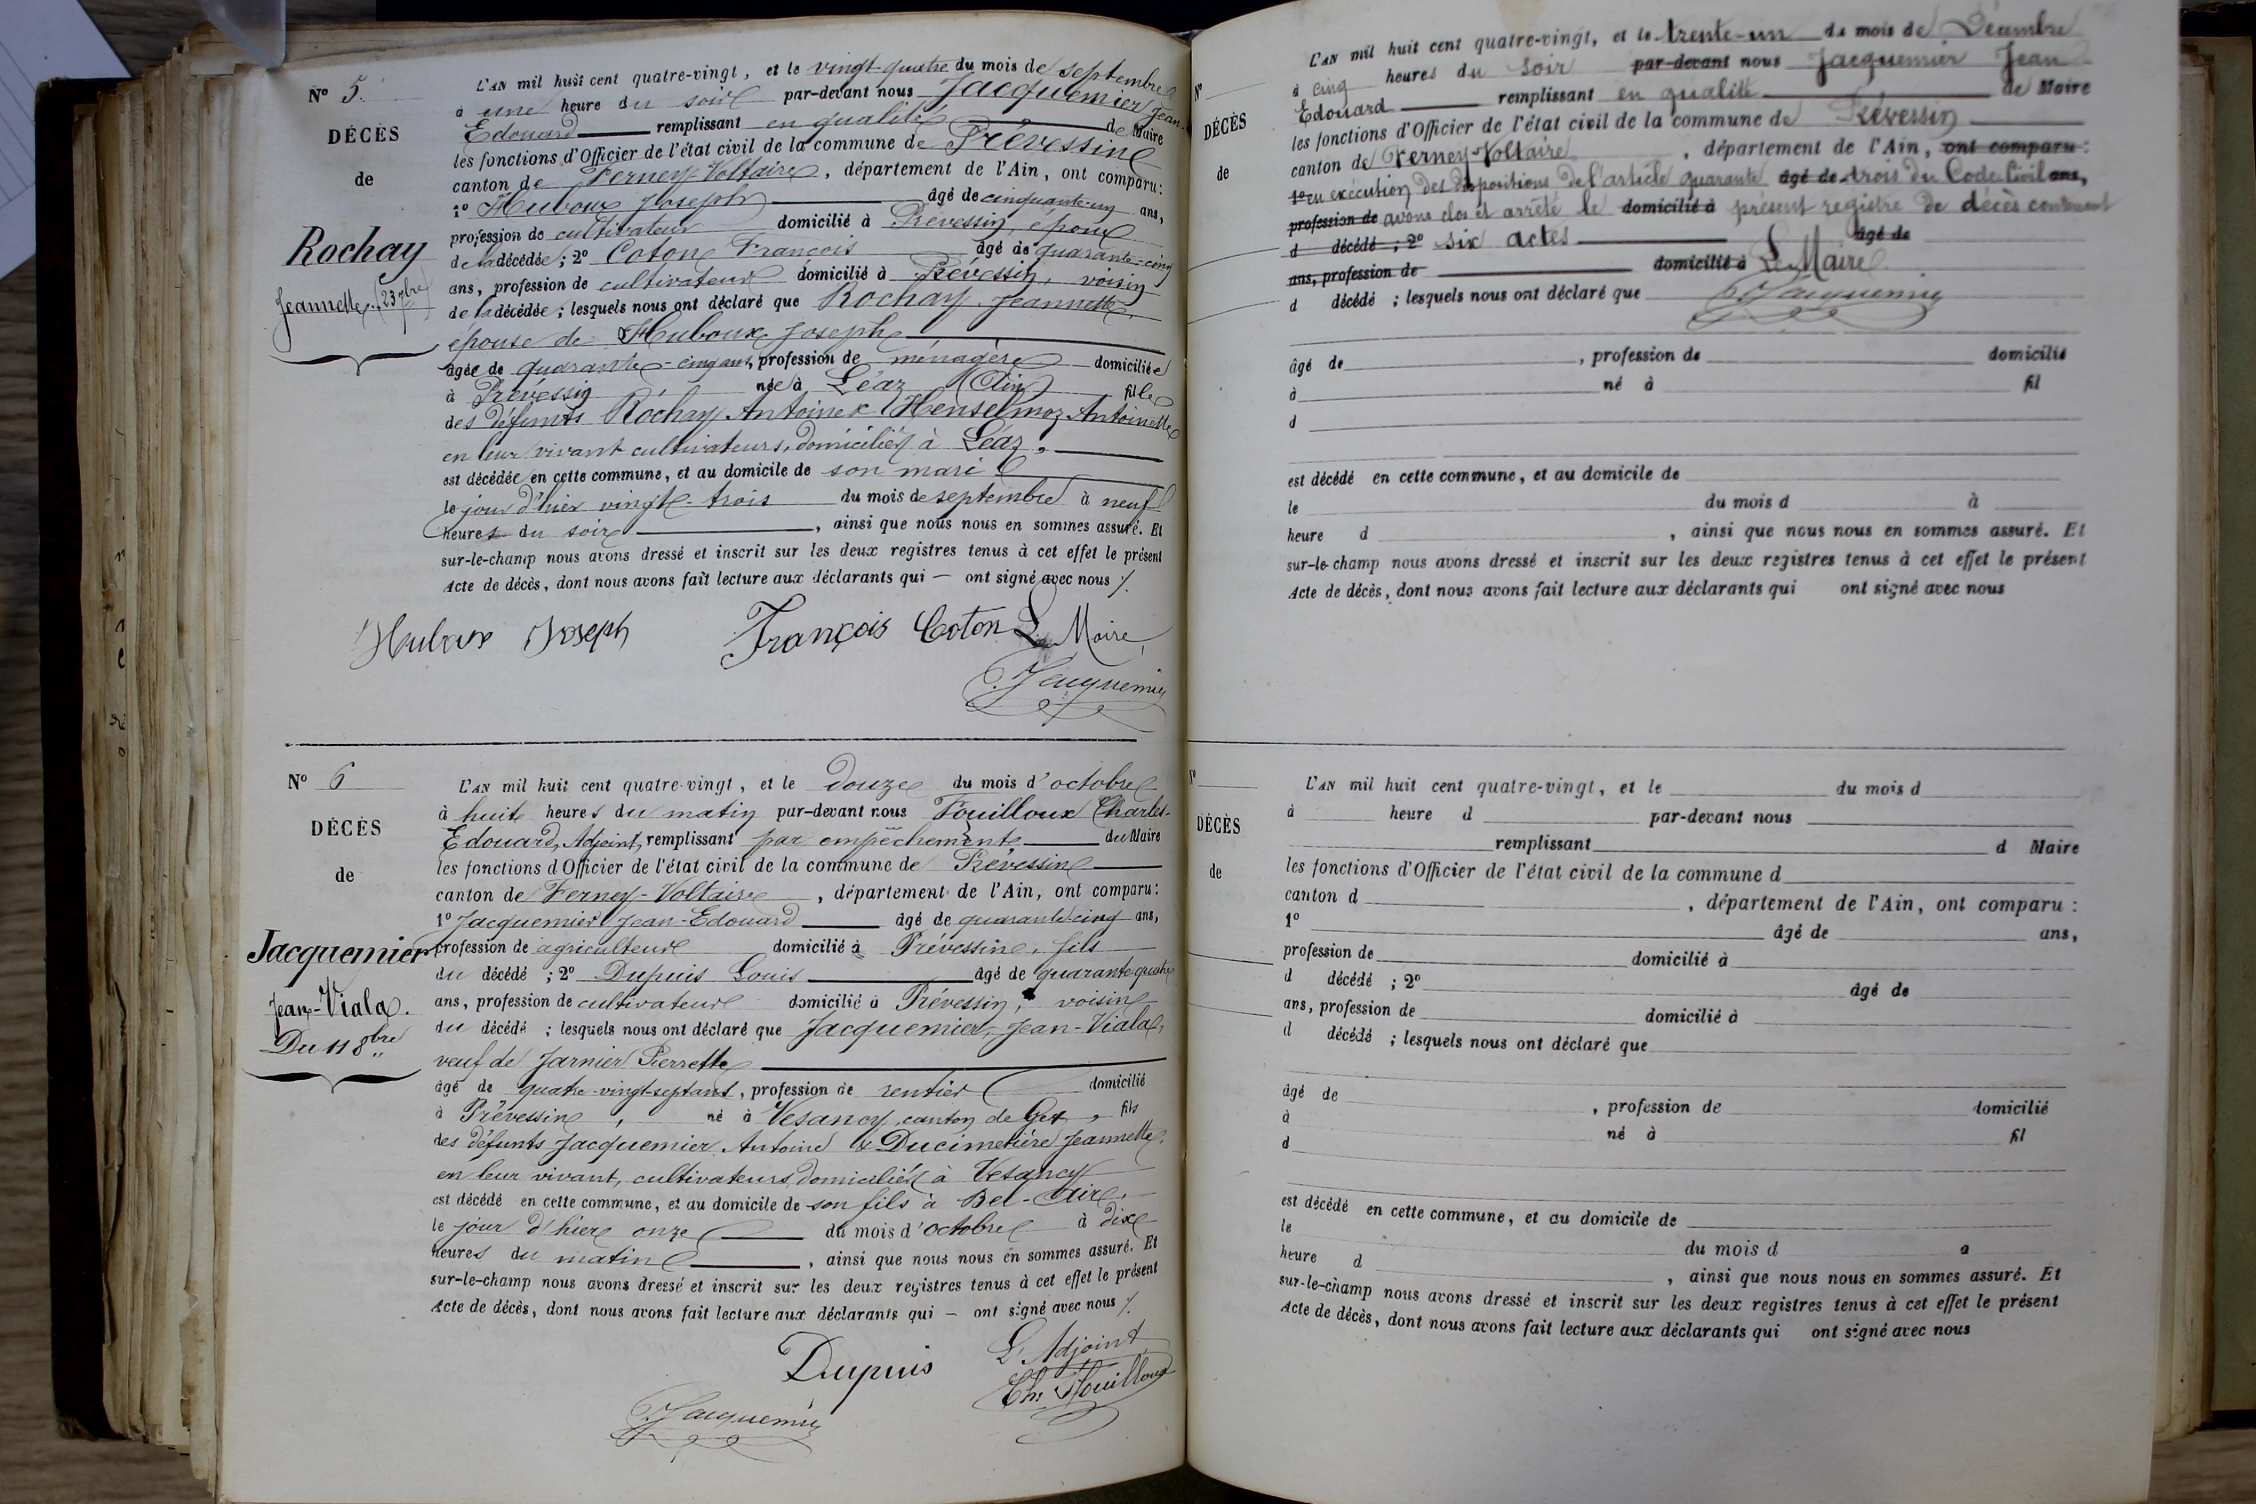 N° 5.
DÉCÈS
de
Rochay
Jeannette. (23 7bre)
L'AN mil huit cent quatre-vingt, et le vingt-quatre du mois de septembre
à une heure du soir par-devant nous Jacquemier Jean-
Edouard remplissant en qualité de Maire
les fonctions d'Officier de l'état civil de la commune de Prévessin
canton de Ferney-Voltaire, département de l'Ain, ont comparu:
1° Huboux Joseph âgé de cinquante-un ans,
profession de cultivateur domicilié à Prévessin, époux
de la décédée; 2° Coton François âgé de quarante-cinq
ans, profession de cultivateur domicilié à Prévessin, voisin
de la décédée; lesquels nous ont déclaré que Rochay Jeannette,
épouse de Huboux Joseph
âgée de quarante-cinq ans, profession de ménagère domiciliée
à Prévessin née à Léaz (Ain) fille
des défunts Rochay Antoine & Henselmoz Antoinette
en leur vivant cultivateurs, domiciliés à Léaz,
est décédée en cette commune, et au domicile de son mari
le jour d'hier vingt-trois du mois de septembre à neuf
heures du soir, ainsi que nous nous en sommes assuré. Et
sur-le-champ nous avons dressé et inscrit sur les deux registres tenus à cet effet le présent
Acte de décès, dont nous avons fait lecture aux déclarants qui — ont signé avec nous /.
Huboux Joseph François Coton Le Maire,
Jacquemier
N° 6
DÉCÈS
de
Jacquemier
Jean-Viala.
Du 11 8bre
L'AN mil huit cent quatre-vingt, et le douze du mois d'octobre
à huit heures du matin par-devant nous Fouilloux Charles-
Edouard, Adjoint, remplissant par empêchement du Maire
les fonctions d'Officier de l'état civil de la commune de Prévessin
canton de Ferney-Voltaire, département de l'Ain, ont comparu:
1° Jacquemier Jean-Edouard âgé de quarante-cinq ans,
profession de agriculteur domicilié à Prévessin, fils
du décédé; 2° Dupuis Louis âgé de quarante-quatre
ans, profession de cultivateur domicilié à Prévessin, voisin
du décédé; lesquels nous ont déclaré que Jacquemier, Jean-Viala,
veuf de Jarnier Pierrette
âgé de quatre-vingt-sept ans, profession de rentier domicilié
à Prévessin, né à Vesancy, canton de Gex, fils
des défunts Jacquemier Antoine & Ducimetière Jeannette,
en leur vivant, cultivateurs, domiciliés à Vesancy
est décédé en cette commune, et au domicile de son fils à Bel-Air,
le jour d'hier onze du mois d'octobre à dix
heures du matin, ainsi que nous nous en sommes assuré. Et
sur-le-champ nous avons dressé et inscrit sur les deux registres tenus à cet effet le présent
Acte de décès, dont nous avons fait lecture aux déclarants qui — ont signé avec nous /.
Dupuis L'Adjoint,
Ch. Fouilloux
Jacquemier
N°
DÉCÈS
de
L'AN mil huit cent quatre-vingt, et le trente-un du mois de Décembre
à cinq heures du soir par-devant nous Jacquemier Jean
Edouard remplissant en qualité de Maire
les fonctions d'Officier de l'état civil de la commune de Prévessin
canton de Ferney-Voltaire, département de l'Ain, ont comparu:
1° en exécution des dispositions de l'article quarante âgé de trois du Code Civil ans,
profession de avons clos et arrêté le domicilié à présent registre de décès contenant
d décédé; 2° six actes âgé de
ans, profession de domicilié à Le Maire
d décédé; lesquels nous ont déclaré que Jacquemier
âgé de , profession de domicilié
à né à fil
d
est décédé en cette commune, et au domicile de
le du mois d à
heure d , ainsi que nous nous en sommes assuré. Et
sur-le-champ nous avons dressé et inscrit sur les deux registres tenus à cet effet le présent
Acte de décès, dont nous avons fait lecture aux déclarants qui ont signé avec nous
N°
DÉCÈS
de
L'AN mil huit cent quatre-vingt, et le du mois d
à heure d par-devant nous
remplissant d Maire
les fonctions d'Officier de l'état civil de la commune d
canton d , département de l'Ain, ont comparu:
1° âgé de ans,
profession de domicilié à
d décédé; 2° âgé de
ans, profession de domicilié à
d décédé; lesquels nous ont déclaré que
âgé de , profession de domicilié
à né à fil
d
est décédé en cette commune, et au domicile de
le du mois d à
heure d , ainsi que nous nous en sommes assuré. Et
sur-le-champ nous avons dressé et inscrit sur les deux registres tenus à cet effet le présent
Acte de décès, dont nous avons fait lecture aux déclarants qui ont signé avec nous